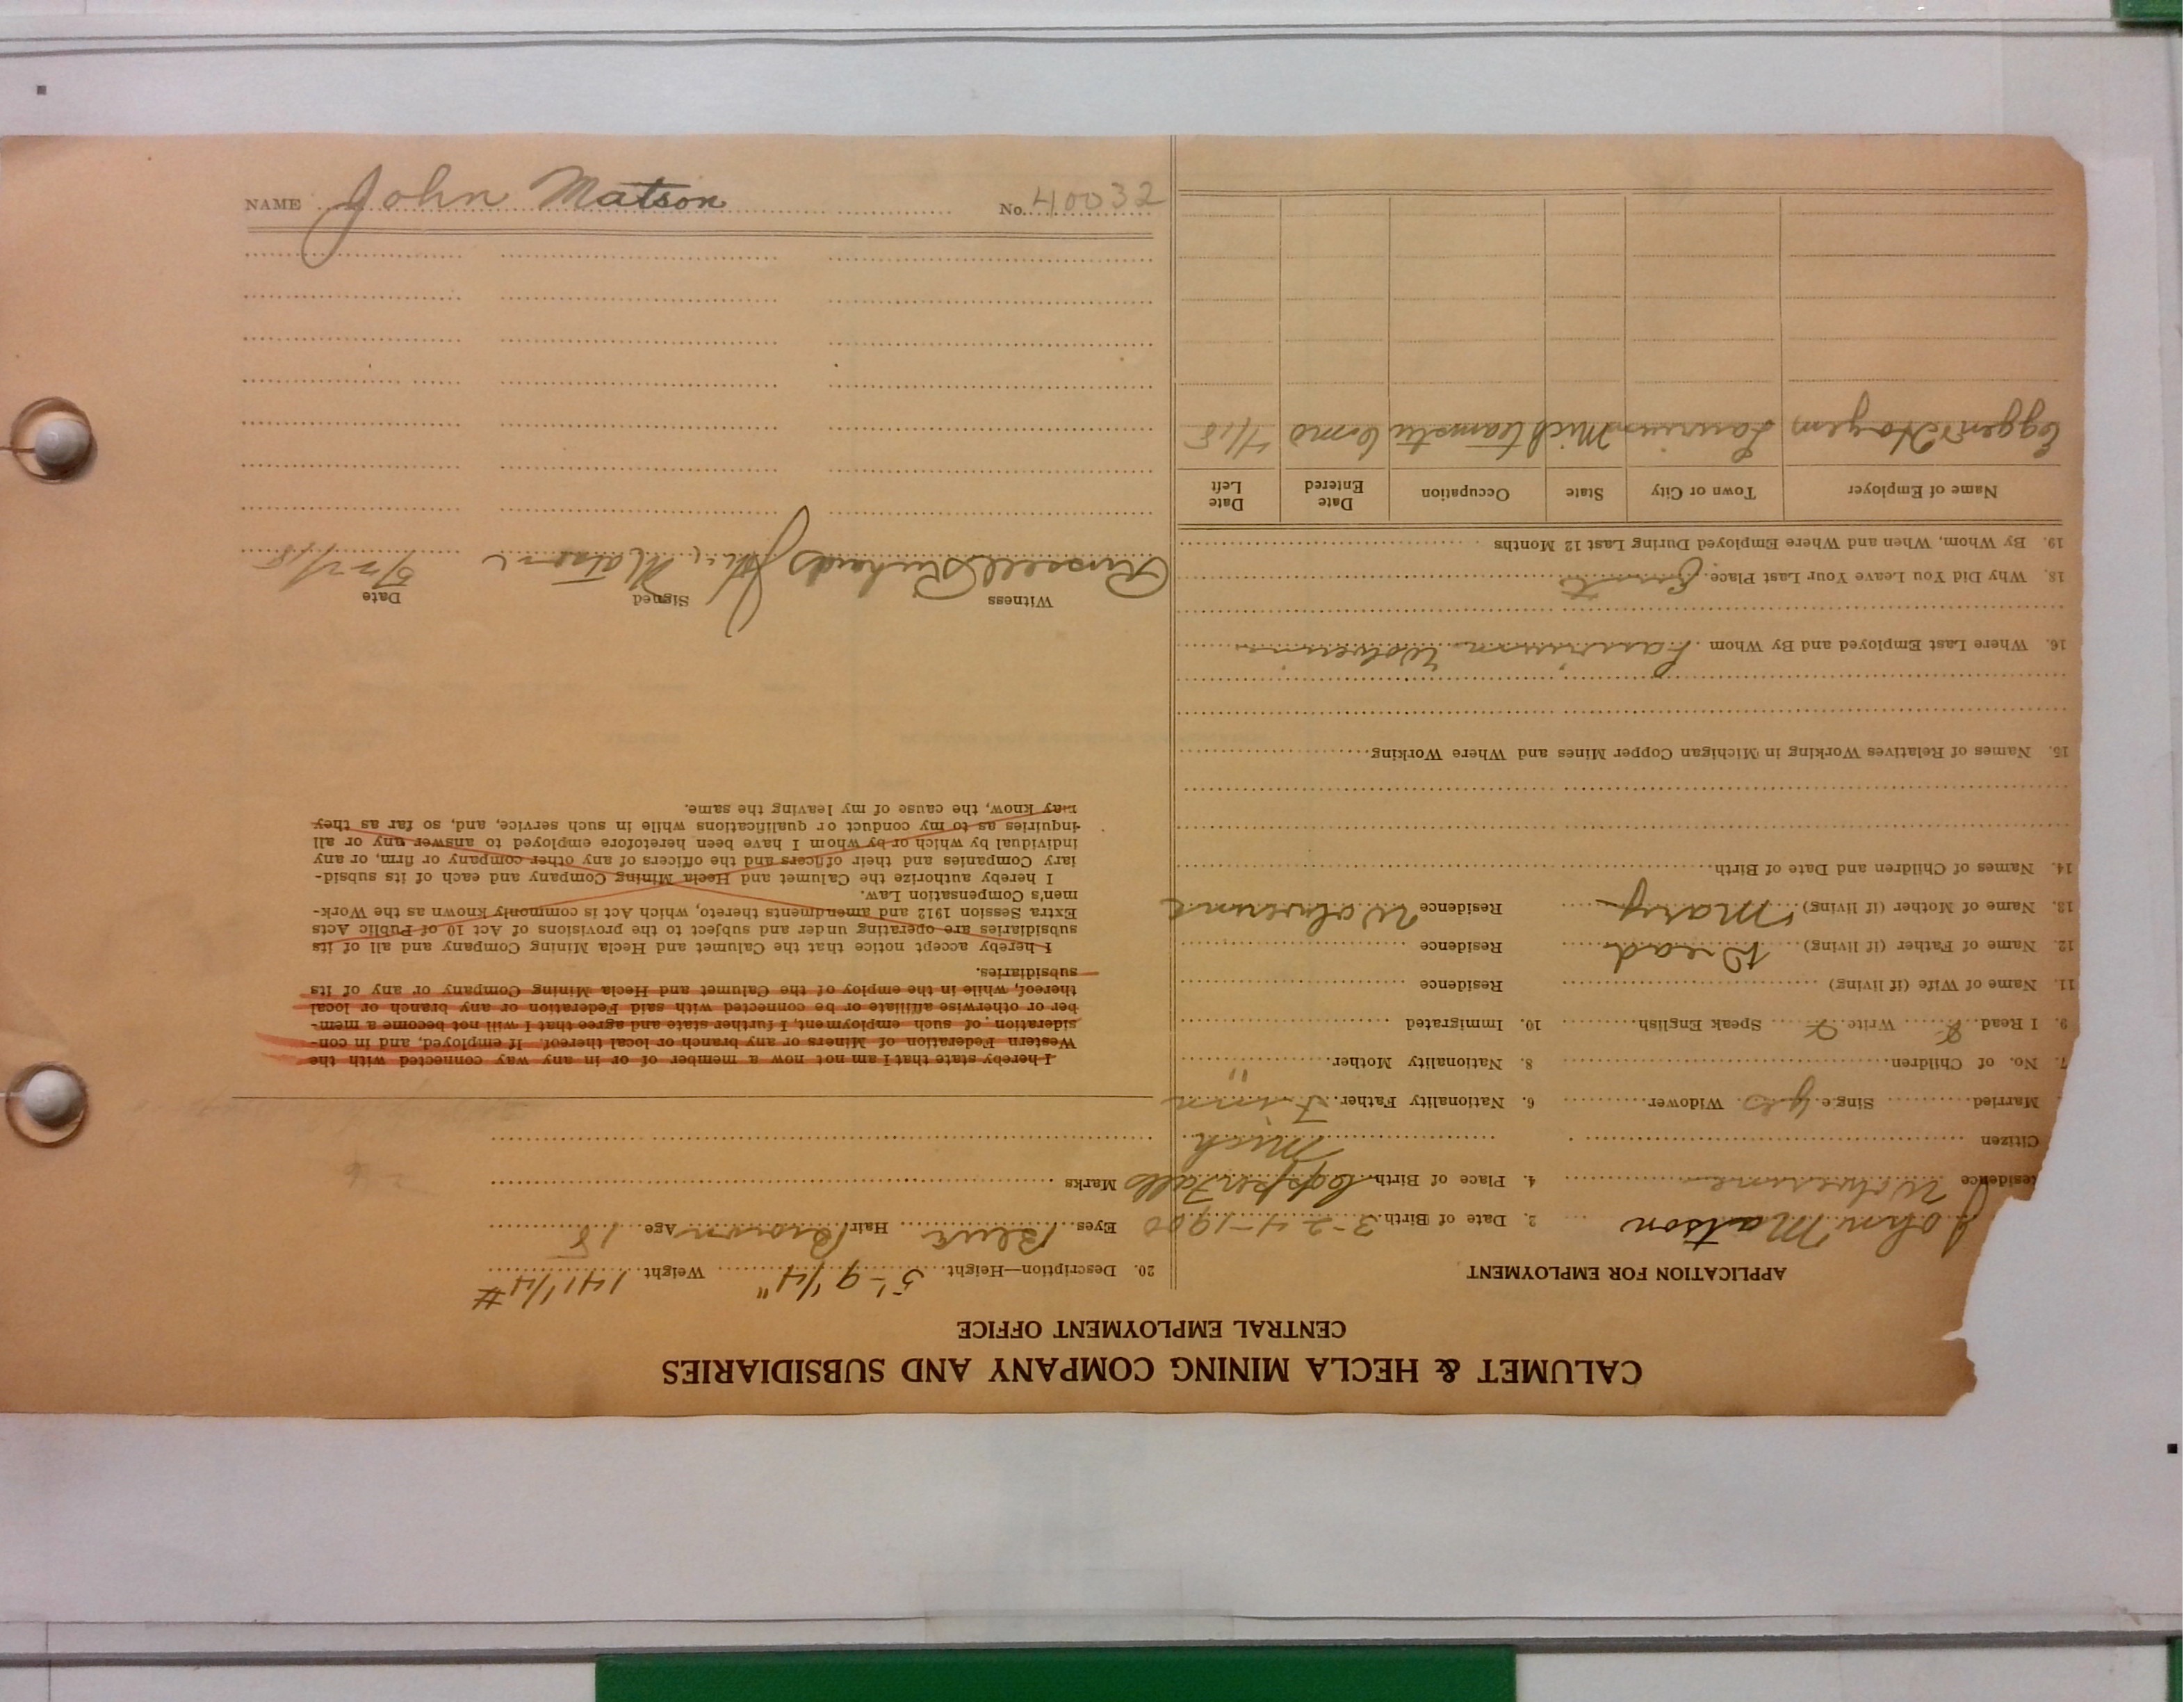 CALUMET & HECLA MINING COMPANY AND SUBSIDIARIES
CENTRAL EMPLOYMENT OFFICE
APPLICATION FOR EMPLOYMENT
John Matson
2. Date of Birth 3-24-1900
esidence Wolverine
4. Place of Birth Copper Falls
Mich
Citizen
Married Single yes Widower
6. Nationality Father Finn
7. No. of Children
8. Nationality Mother "
9. I Read Write Speak English
10. Immigrated
11. Name of Wife (if living) Residence
12. Name of Father (if living) Dead Residence
13. Name of Mother (if living) Mary Residence Wolverine
14. Names of Children and Date of Birth
15. Names of Relatives Working in Michigan Copper Mines and Where Working
16. Where Last Employed and By Whom Laurium Wolverine
18. Why Did You Leave Your Last Place
19. By Whom, When and Where Employed During Last 12 Months
Name of Employer Town or City State Occupation Date Entered Date Left
Laurium Mich teamster 6 mo 4/18
20. Description—Height 5'-9 1/4" Weight 141 1/4 #
Eyes Blue Hair Brown Age 18
Marks
I hereby state that I am not now a member of or in any way connected with the
Western Federation of Miners or any branch or local thereof. If employed, and in con-
sideration of such employment, I further state and agree that I will not become a mem-
ber or otherwise affiliate or be connected with said Federation or any branch or local
thereof, while in the employ of the Calumet and Hecla Mining Company or any of its
subsidiaries.
I hereby accept notice that the Calumet and Hecla Mining Company and all of its
subsidiaries are operating under and subject to the provisions of Act 10 of Public Acts
Extra Session 1912 and amendments thereto, which Act is commonly known as the Work-
men's Compensation Law.
I hereby authorize the Calumet and Hecla Mining Company and each of its subsid-
iary Companies and their officers and the officers of any other company or firm, or any
individual by which or by whom I have been heretofore employed to answer any or all
inquiries as to my conduct or qualifications while in such service, and, so far as they
may know, the cause of my leaving the same.
Witness Signed Date
Russell Richards John Matson 5/22/18
NAME John Matson No. 40032